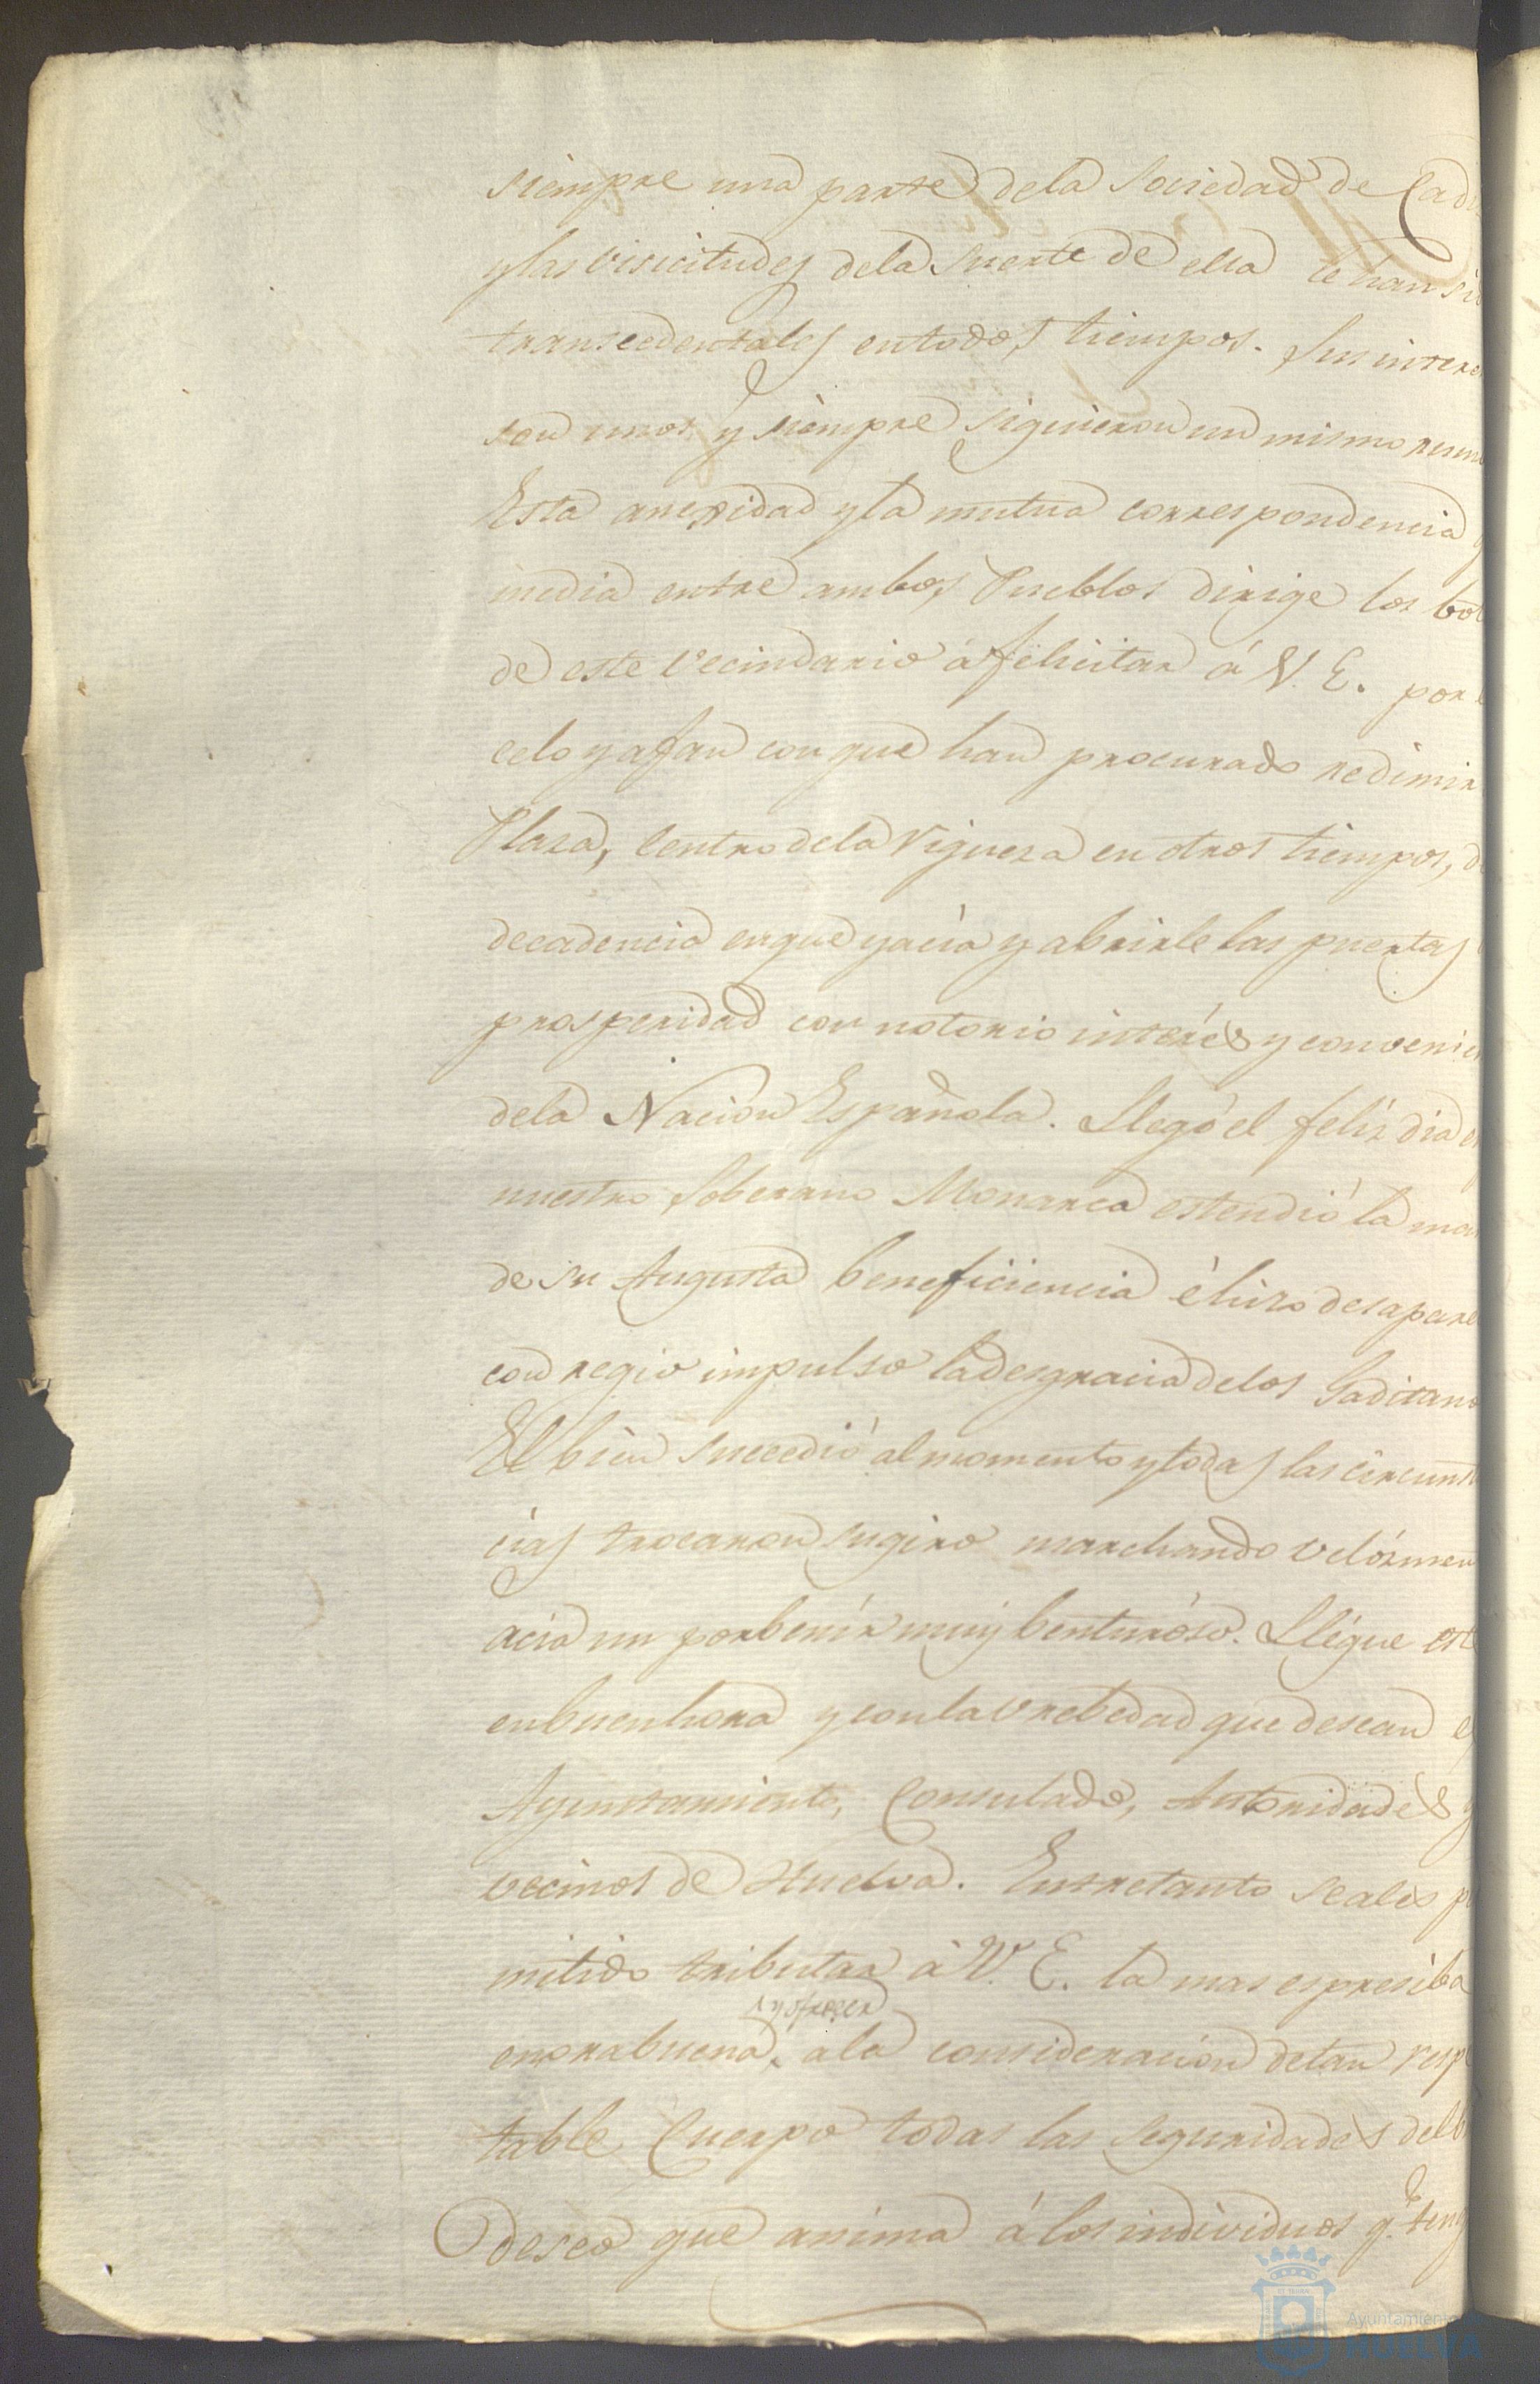 siempre una parte dela Sociedad de Cadi
ylas visicitudes dela Suerte de ella le han si
transcedentales entodos tiempos. Sus intere
son unos y siempre siguieron un mismo rum
Esta anexidad yla mutua correspondencia q
media entre ambos Pueblos dirige los bot
de este Vecindario á felicitar á V. E. por e
celo y afan con que han procurado redimir
Plaza, Centro dela Riqueza en otros tiempos, de
decadencia enque yacía y abrirle las puertas
prosperidad con notorio interés y convenie
dela Nación Española. Llegó el felíz dia e
nuestro Soberano Monarca estendió la ma
de su Augusta beneficiencia é hizo desapare
con regio impulso la desgracia delos Gaditano
El bien Sucedió al momento y todas las circunst
cias trocaron sugiro marchando velózmen
acia un porbenír muy benturóso. Llégue est
enbuenhora y conla brebedad que desean e
Ayuntamiento, Consulado, Autoridades y
vecinos de Huelva. Entretanto seales p
mitido tributar á V. E. la mas espresiba
y ofrecer
enorabuena, ala consideración detan resp
table Cuerpo todas las seguridades delb
deseo que anima á los individuos q.e teng
Ayuntamiento
HUELVA